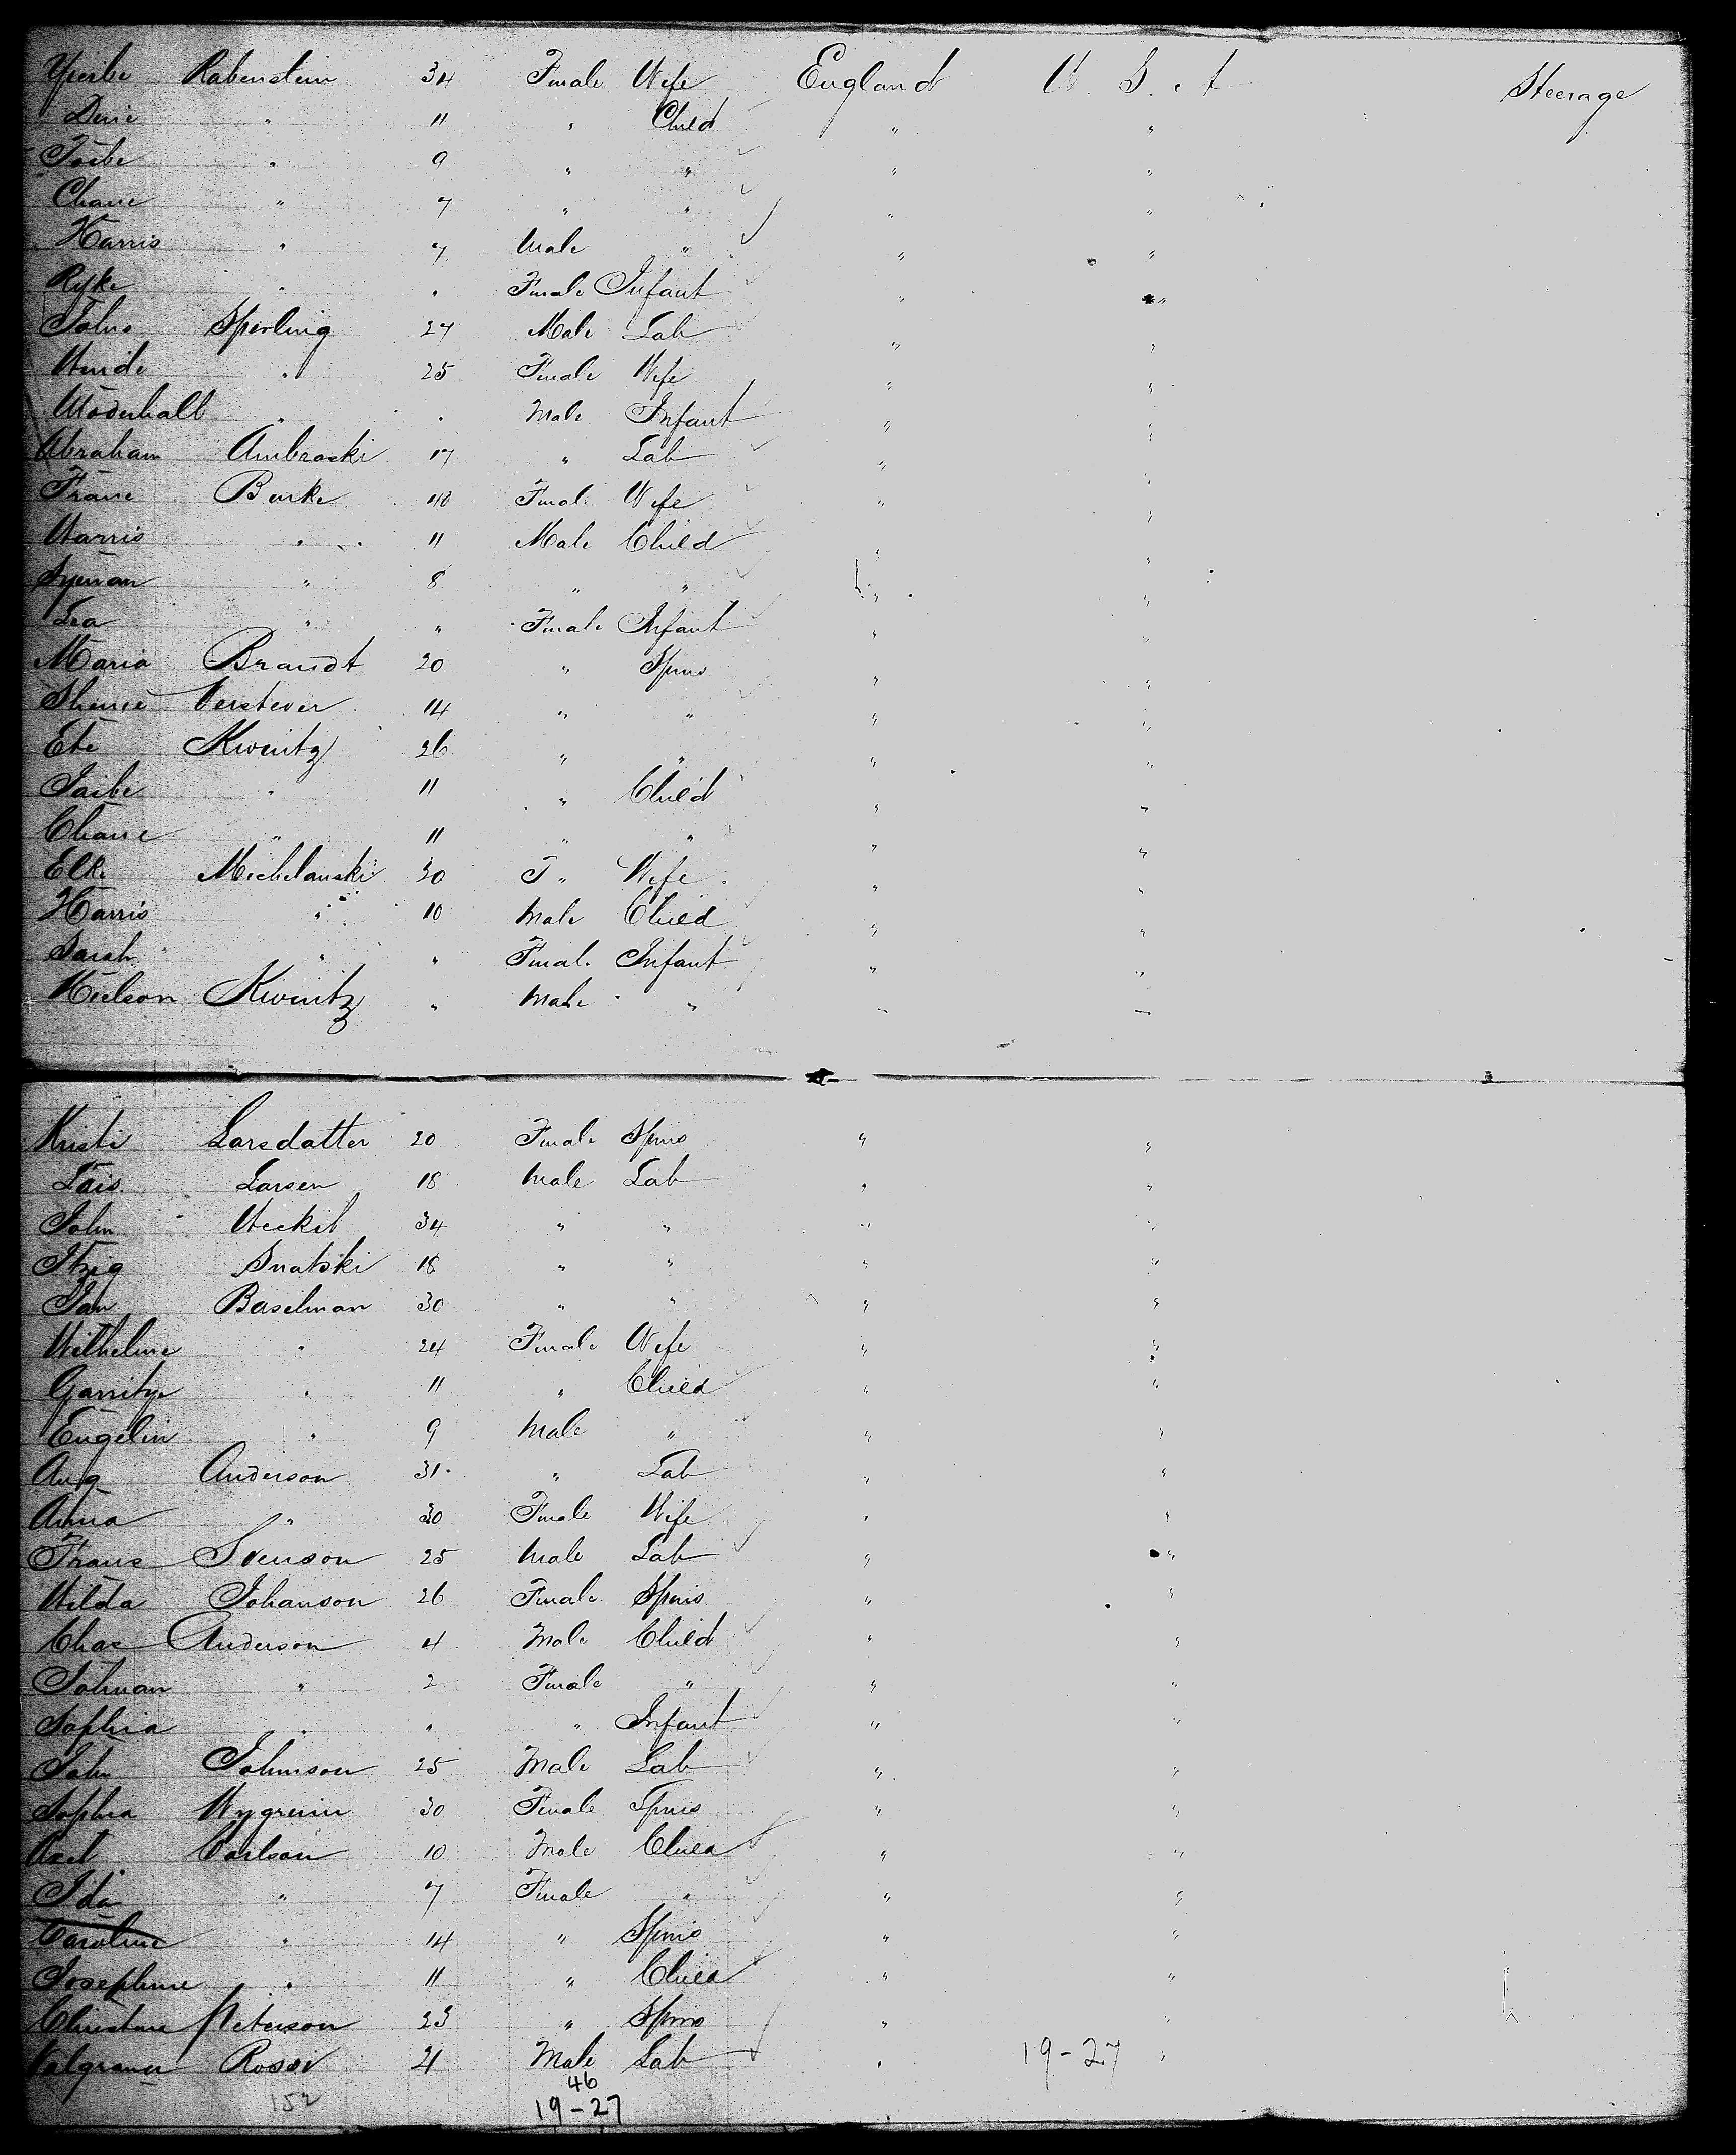 Rabenstein 34 Female Wife England U. S. A Steerage
" 11 " Child " "
Taube " 9 " " " "
Chane " 7 " " " "
Harris " 7 Male " " "
Ryke " " Female Infant " "
John Sperling 27 Male Lab " "
" 25 Female Wife " "
" " Male Infant " "
Abraham Ambraski 17 " Lab " "
Burke 40 Femal. Wife " "
Harris " 11 Male Child " "
" 8 " " " "
Lea " " Female Infant " "
Maria Brandt 20 " Spins " "
14 " " " "
Ete Kwintz 26 " " " "
Taibe " 11 " Child " "
Chane " 11 " " " "
Elke Michelanski 30 F " Wife " "
Harris " 10 Male Child " "
Sarah " " Femal. Infant " "
Kwintz " Male " " "
Kristi Larsdatter 20 Female Spins " "
Larsen 18 Male Lab " "
John 34 " " " "
Itzig 18 " " " "
Jan Baselman 30 " " " "
Wilhelme " 24 Female Wife " "
Garritje " 11 " Child " "
Engelin " 9 Male " " "
Aug Anderson 31 " Lab " "
Anna " 30 Female Wife " "
Frans Svenson 25 Male Lab " "
Hilda Johanson 26 Female Spins " "
Chas Anderson 4 Male Child " "
" 2 Female " " "
Sophia " " " Infant " "
John Johnson 25 Male Lab " "
Sophia 30 Female Spins " "
Axel Carlson 10 Male Child " "
Ida " 7 Female " " "
Caroline " 14 " Spins " "
Josephine " 11 " Child " "
Christine Peterson 23 " Spins " "
Rossi 21 Male Lab " 19-27 "
46
152 19-27